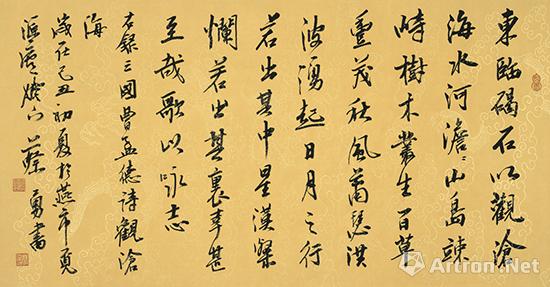 東臨碣石以觀滄
海水河澹〻山島竦
峙樹木叢生百草
豐茂秋風蕭瑟洪
波湧起日月之行
若出其中星漢燦
爛若出其裏幸甚
至哉歌以咏志
右錄三國曹孟德詩觀滄
海
歲在己丑初夏於燕市
牕下蔡勇書
Artron.Net